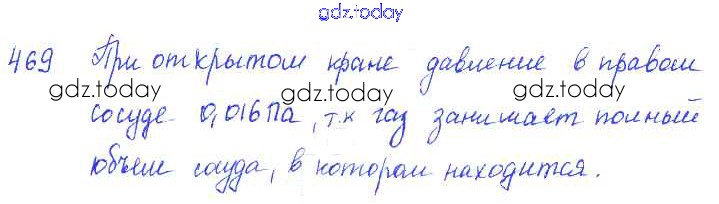 gdz.today
469 При открытом кране давление в правом
gdz.today gdz.today gdz.today
сосуде 0,016 Па, т.к газ занимает полный
объем сосуда, в котором находится.